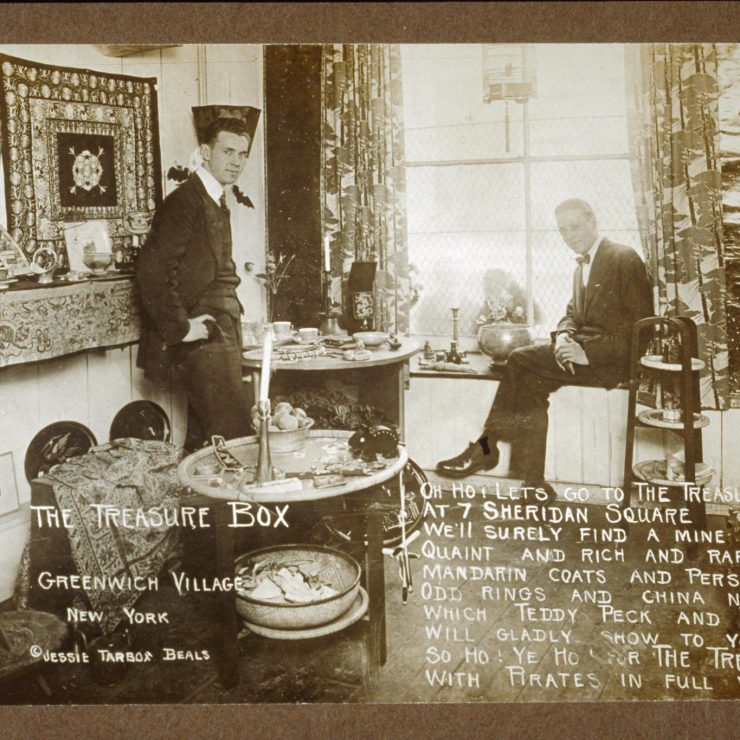 The Treasure Box
Greenwich Village
New York
© Jessie Tarbox Beals
Oh Ho! Lets go to The Treasu
At 7 Sheridan Square
We'll surely find a mine
Quaint and rich and rar
Mandarin coats and Pers
Odd rings and china n
Which Teddy Peck and
Will gladly show to y
So Ho! Ye Ho! for The Tre
With Pirates in full v